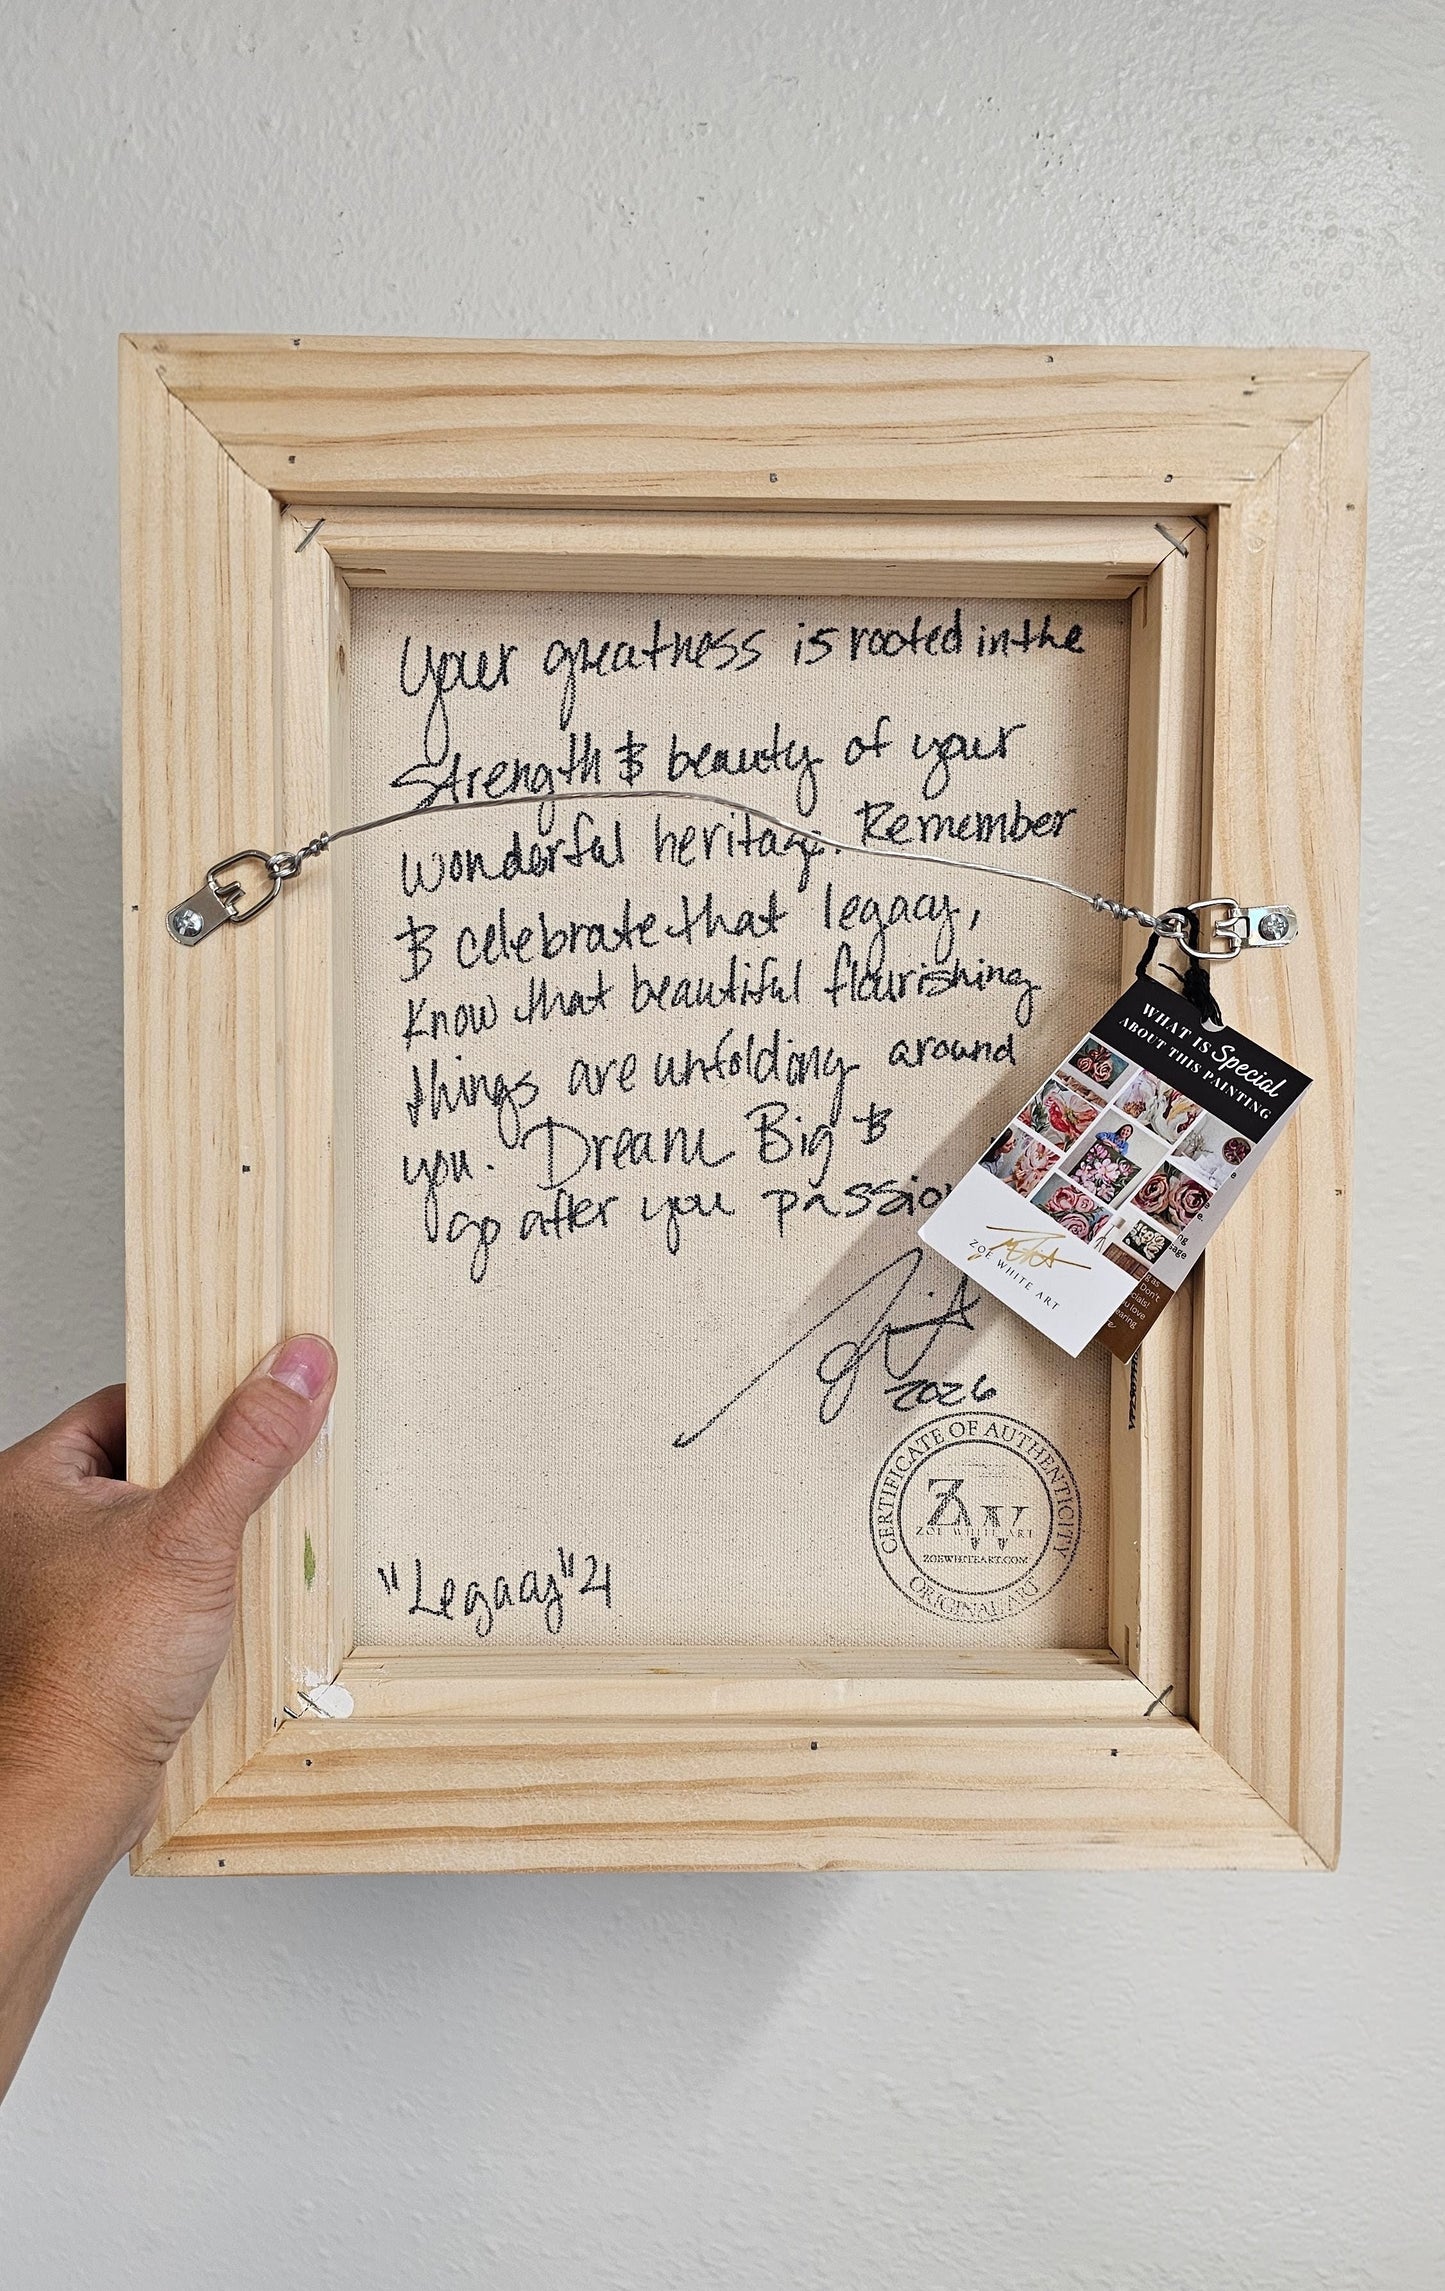 Your greatness is rooted in the
Strength & beauty of your
wonderful heritage. Remember
& celebrate that legacy,
Know that beautiful flourishing
things are unfolding around
you. Dream Big &
go after you passio
2026
"Legacy" 21
WHAT IS Special
ABOUT THIS PAINTING
ZOE WHITE ART
CERTIFICATE OF AUTHENTICITY
ZW
ZOE WHITE ART
ZOEWHITEART.COM
ORIGINAL ART
Don't
u love